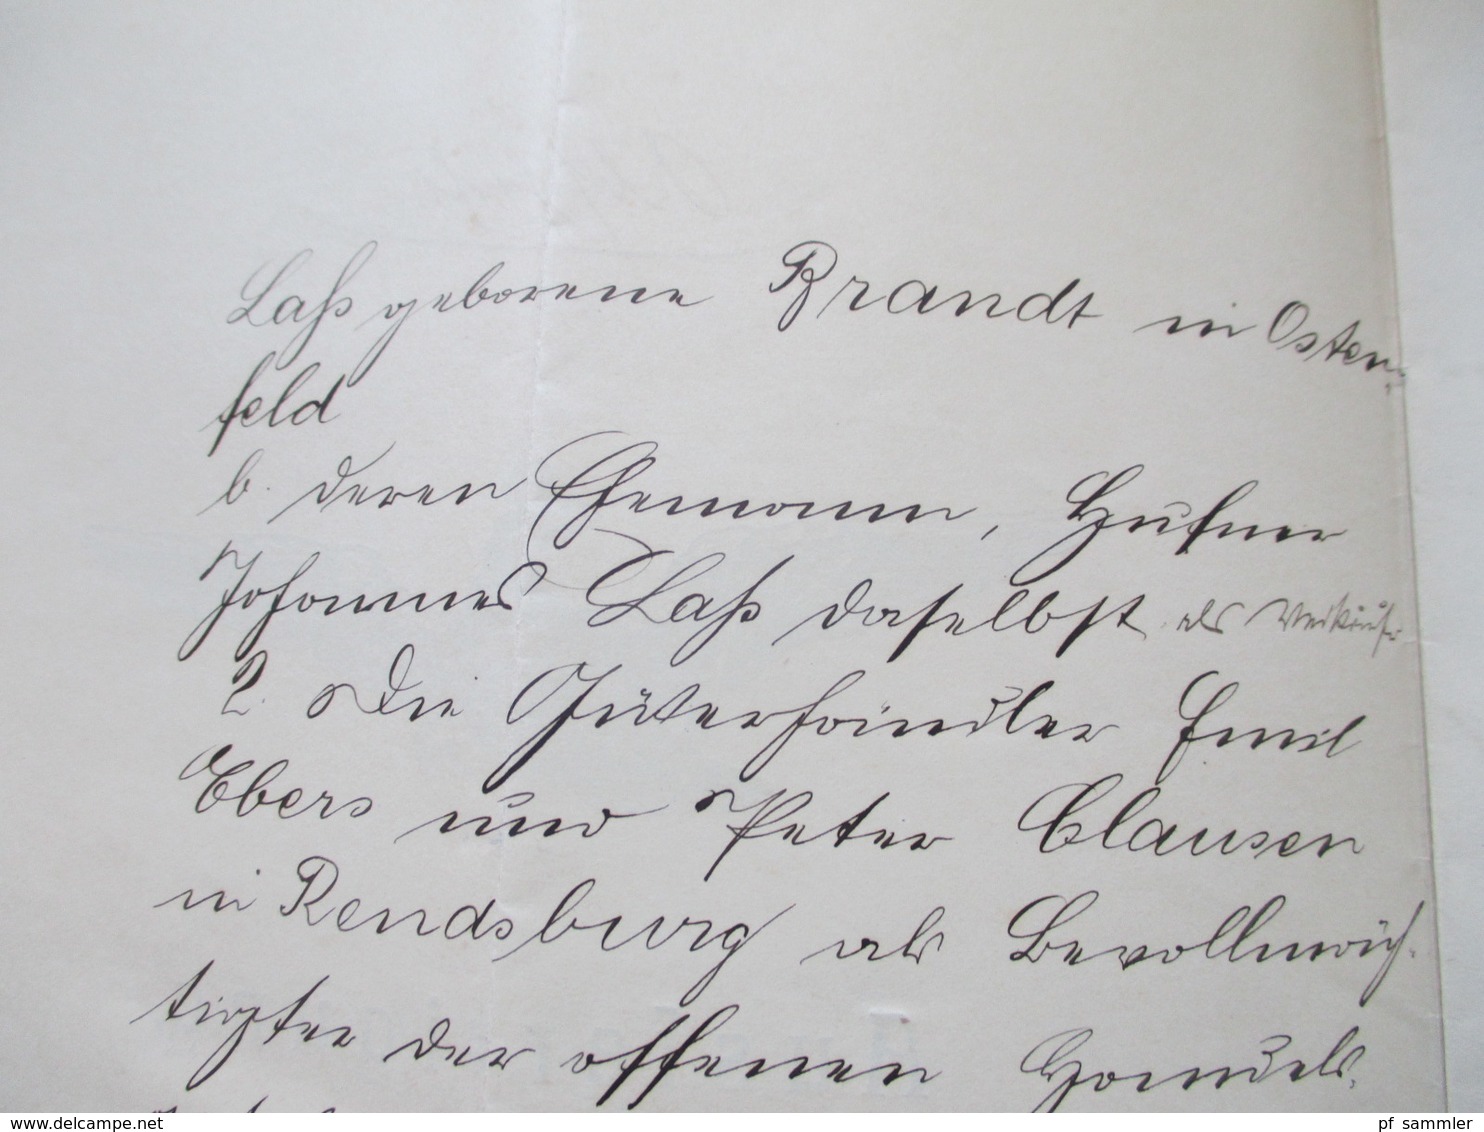 Laß geborene Brandt in Osten-
feld
b. deren Ehemann, Hufner
Johannes Laß daselbst als Verkäufer
2. Die Güterhändler Emil
Ebers und Peter Clausen
in Rendsburg als Bevollmäch-
tigter der offenen Handels-
www.delcampe.net
pf_sammler